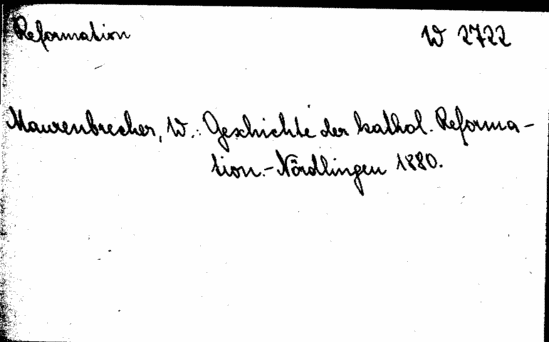 Reformation W 2722
Maurenbrecher, W.: Geschichte der kathol. Reforma-
tion.-Nördlingen 1880.